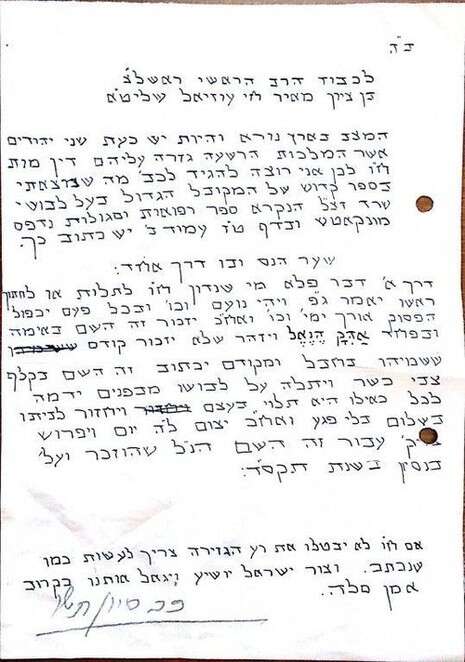 ב"ה
לכבוד הרב הראשי ראשל"צ
בן ציון מאיר חי עוזיאל שליט"א
המצב בארץ נורא והיות יש כעת שני יהודים
אשר המלכות הרשעה גזרה עליהם דין מות
ח"ו לכן אני רוצה להגיד לכב' מה שמצאתי
בספר קדוש של המקובל הגדול בעל לבושי
שרד זצ"ל הנקרא ספר רפואות וסגולות נדפס
מונקאטש ובדף ט"ז עמוד ב' יש כתוב כך.
שער הנס ובו דרך אחד:
דרך א' דבר פלא מי שנדון ח"ו לתלות או לחתוך
ראשו יאמר ג"פ ויהי נועם וכו' ובכל פעם יכפול
הפסוק אורך ימי' וכו' ואח"כ יזכור זה השם באימה
ובפחד ויזהר שלא יזכור קודם
ששמיהו בחבל ומקודם יכתוב זה השם בקלף
צבי כשר ויתלה על לבושו מבפנים ידמה
לכל כאילו היא תלוי בעצם ויחזור לביתו
בשלום בלי פגע ואח"כ יצום ל"ה יום ויפרוש
עבור זה השם הנ"ל שהוזכר ועל'
בנסין בשנת תקס"ד:
אם ח"ו לא יבטלו את רע הגזירה צריך לעשות כמו
שנכתב. וצור ישראל יושיע ויגאל אותנו בקרוב
אמן סלה.
כב סיון תש"ו